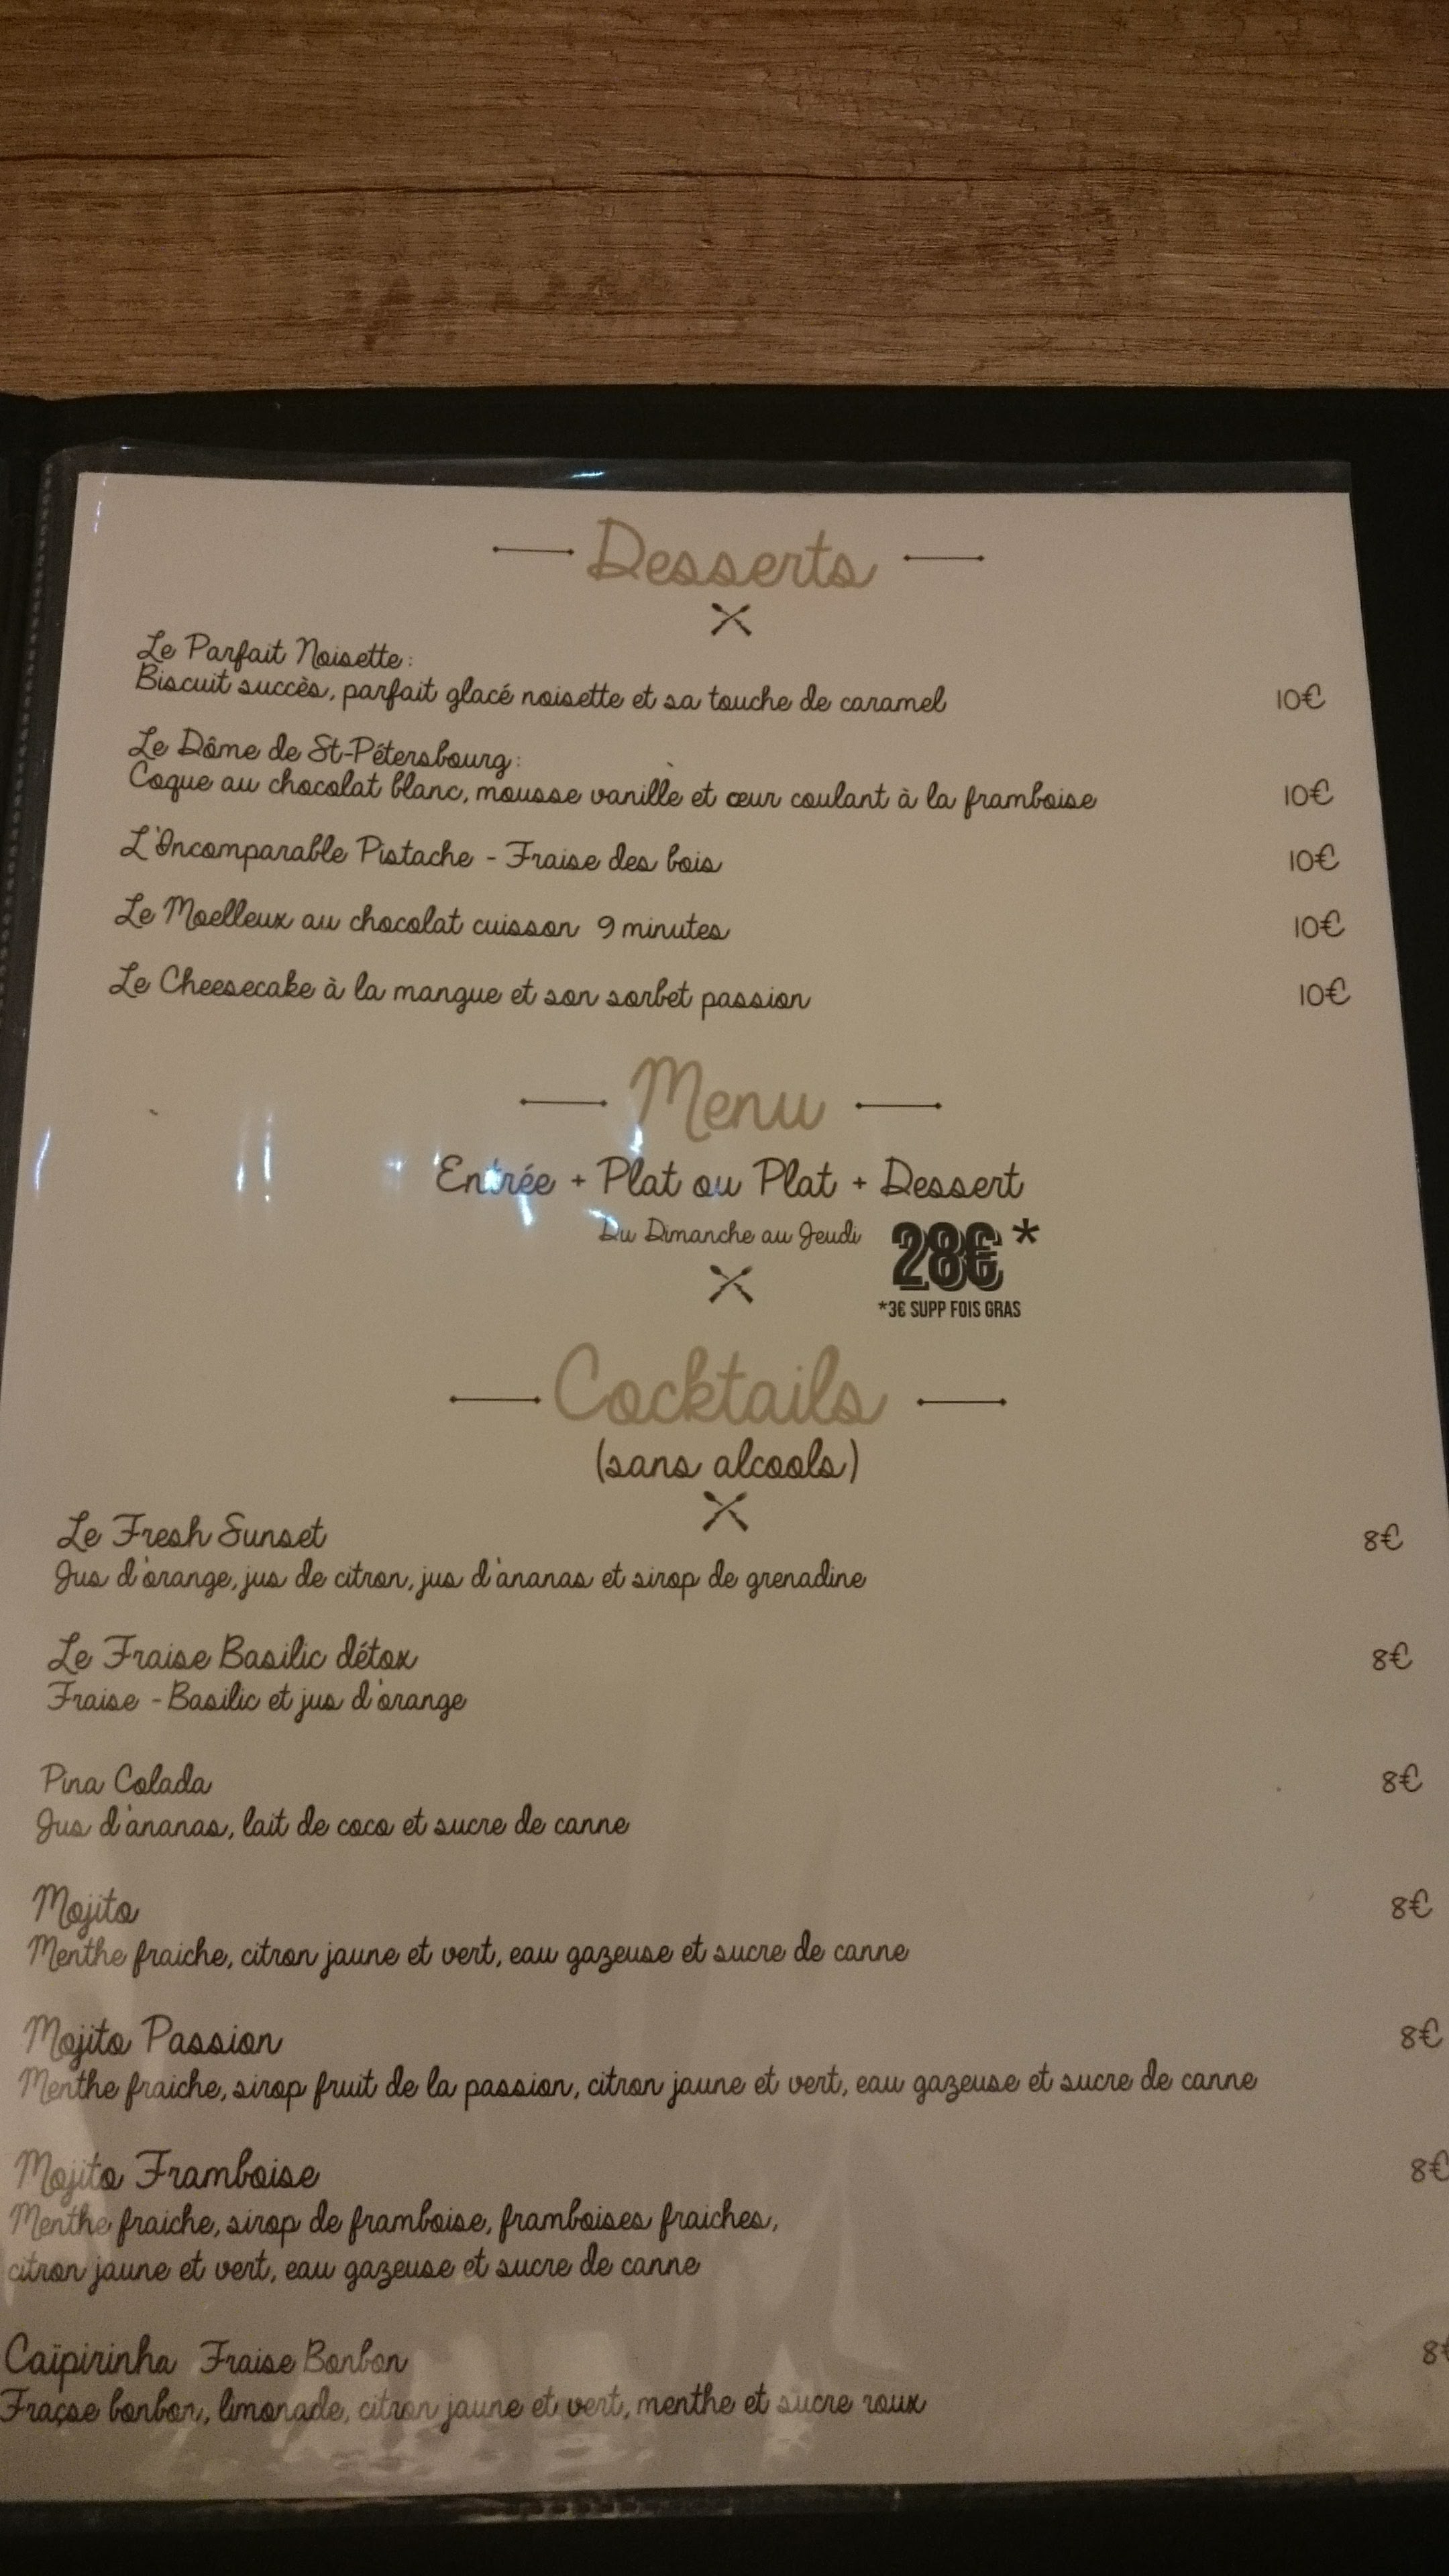 Desserts
Le Parfait Noisette:
Biscuit succès, parfait glacé noisette et sa touche de caramel 10€
Le Dôme de St-Pétersbourg:
Coque au chocolat blanc, mousse vanille et cœur coulant à la framboise 10€
L'Incomparable Pistache - Fraise des bois 10€
Le Moelleux au chocolat cuisson 9 minutes 10€
Le Cheesecake à la mangue et son sorbet passion 10€
Menu
Entrée + Plat ou Plat + Dessert
Du Dimanche au Jeudi 28€*
*3€ SUPP FOIS GRAS
Cocktails
(sans alcools)
Le Fresh Sunset 8€
Jus d'orange, jus de citron, jus d'ananas et sirop de grenadine
Le Fraise Basilic détox 8€
Fraise - Basilic et jus d'orange
Pina Colada 8€
Jus d'ananas, lait de coco et sucre de canne
Mojito 8€
Menthe fraiche, citron jaune et vert, eau gazeuse et sucre de canne
Mojito Passion 8€
Menthe fraiche, sirop fruit de la passion, citron jaune et vert, eau gazeuse et sucre de canne
Mojito Framboise 8€
Menthe fraiche, sirop de framboise, framboises fraiches,
citron jaune et vert, eau gazeuse et sucre de canne
Caïpirinha Fraise Bonbon 8€
Fraçse bonbon, limonade, citron jaune et vert, menthe et sucre roux